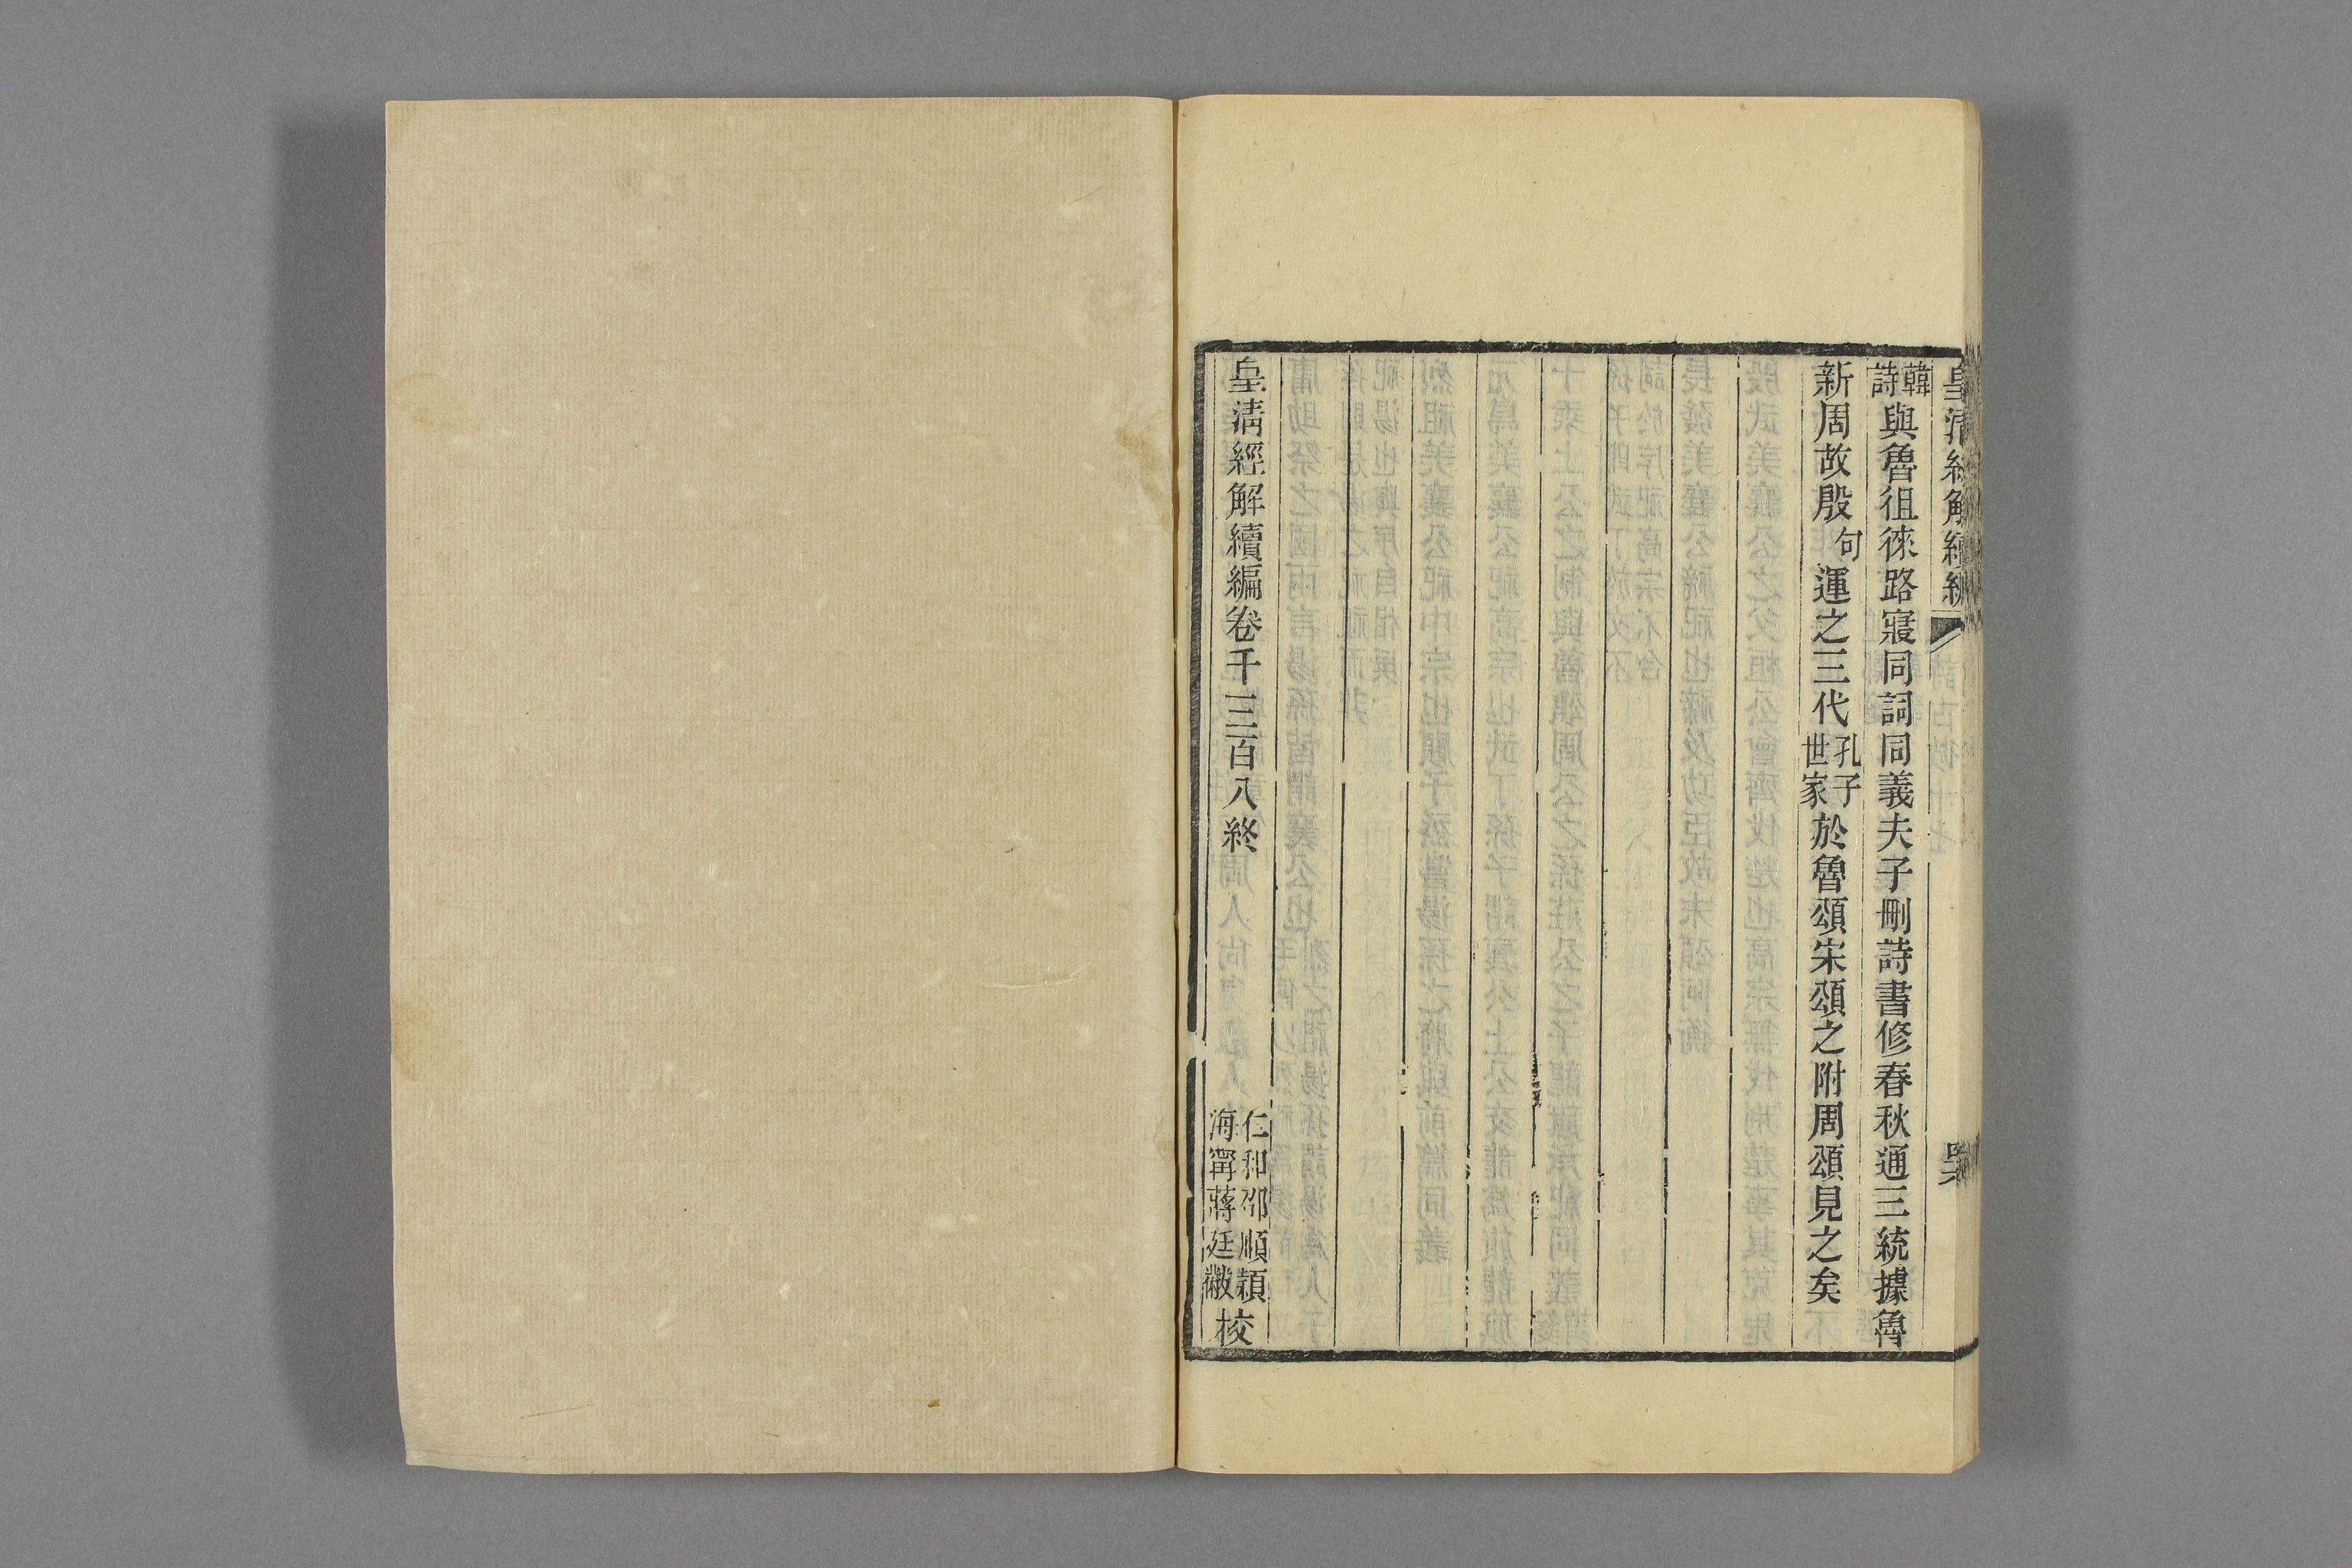 皇清經解續編
韓詩與魯徂徠路寢同詞同義夫子刪詩書修春秋通三統據魯
新周故殷句運之三代孔子世家於魯頌宋頌之附周頌見之矣
皇清經解續編卷千三百八終
仁和邵順顈
海甯蔣廷黻
校